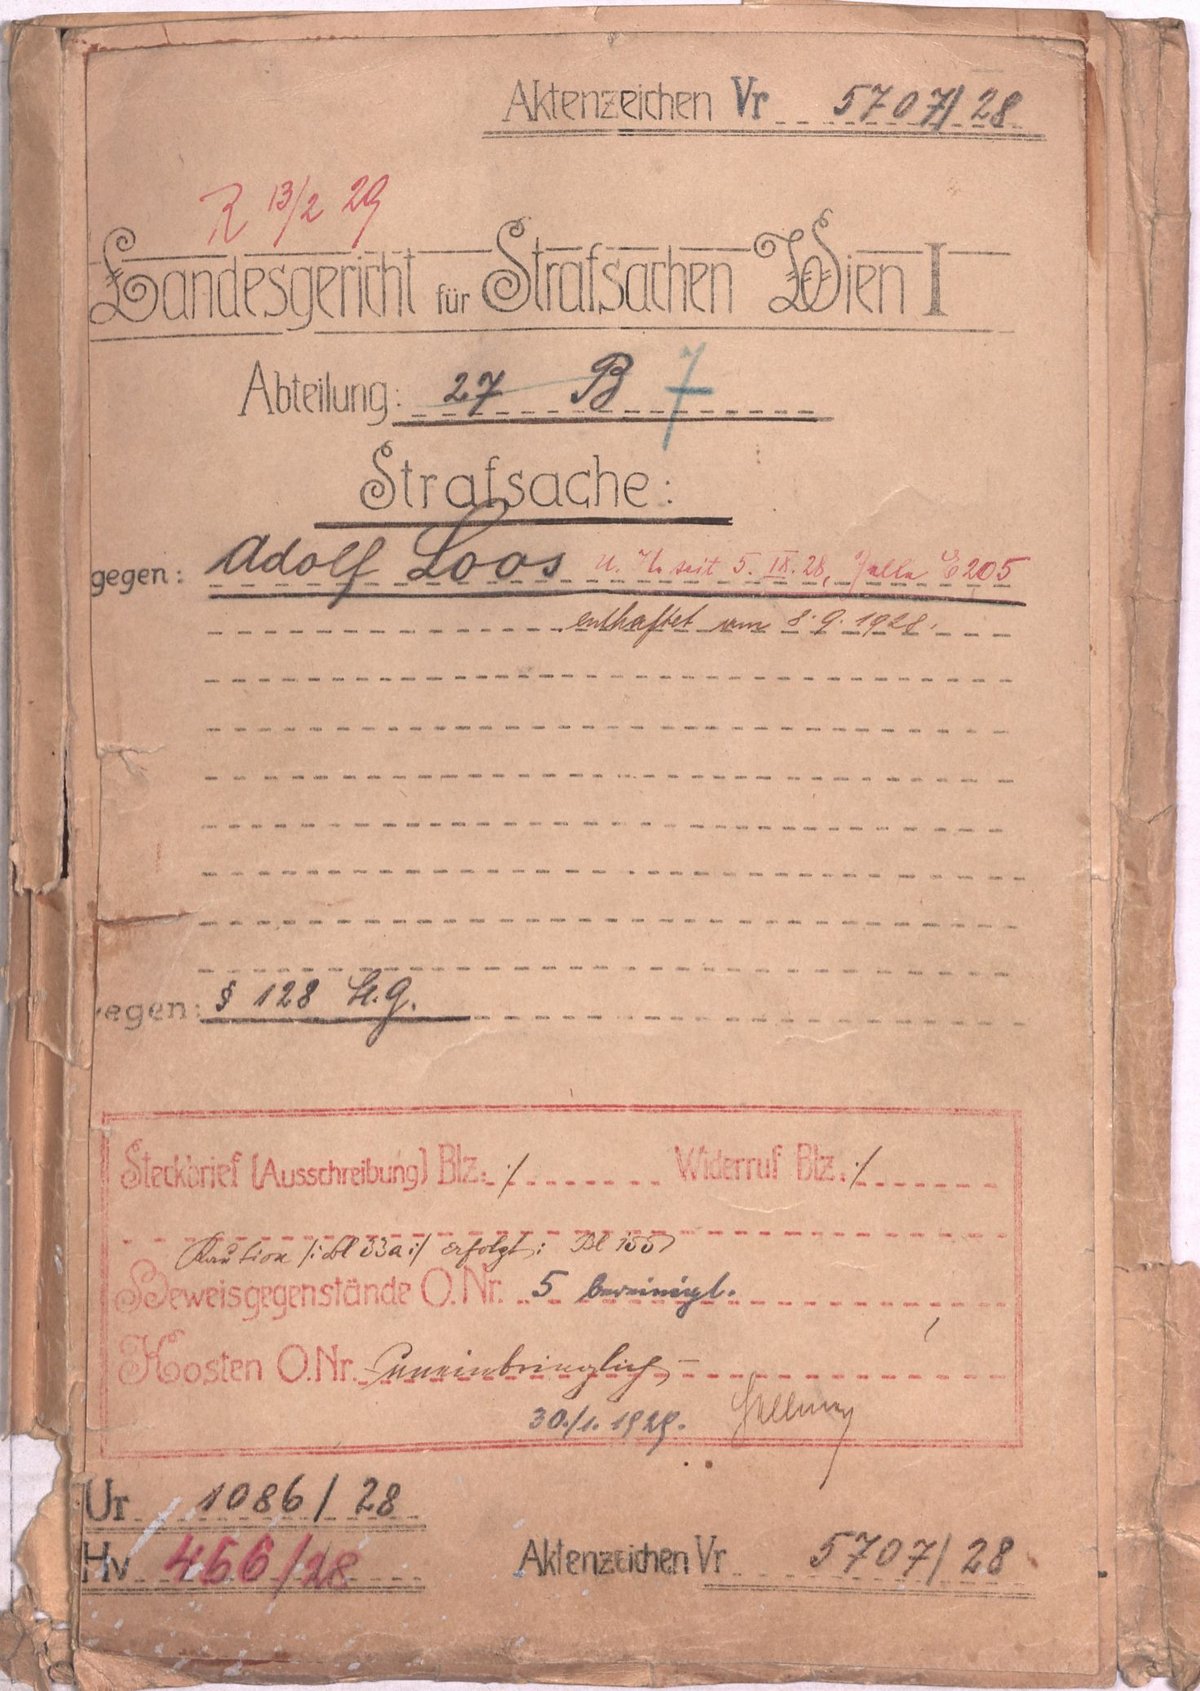 Aktenzeichen Vr 5707/28
R 13/2 29
Landesgericht für Strafsachen Wien I
Abteilung: 27 B 7
Strafsache:
gegen: Adolf Loos U. H. seit 5. IX. 28, Zelle E 205
enthaftet am 8. 9. 1928.
egen: § 128 St. G.
Steckbrief (Ausschreibung) Blz. ·/. Widerruf Blz. ·/.
Kaution /: Bl 33a :/ erfolgt: Bl 155
Beweisgegenstände O. Nr. 5 bereinigt.
Kosten O. Nr. uneinbringlich
30./1. 1929.
Ur 1086/28
Hv 466/28 Aktenzeichen Vr 5707/28